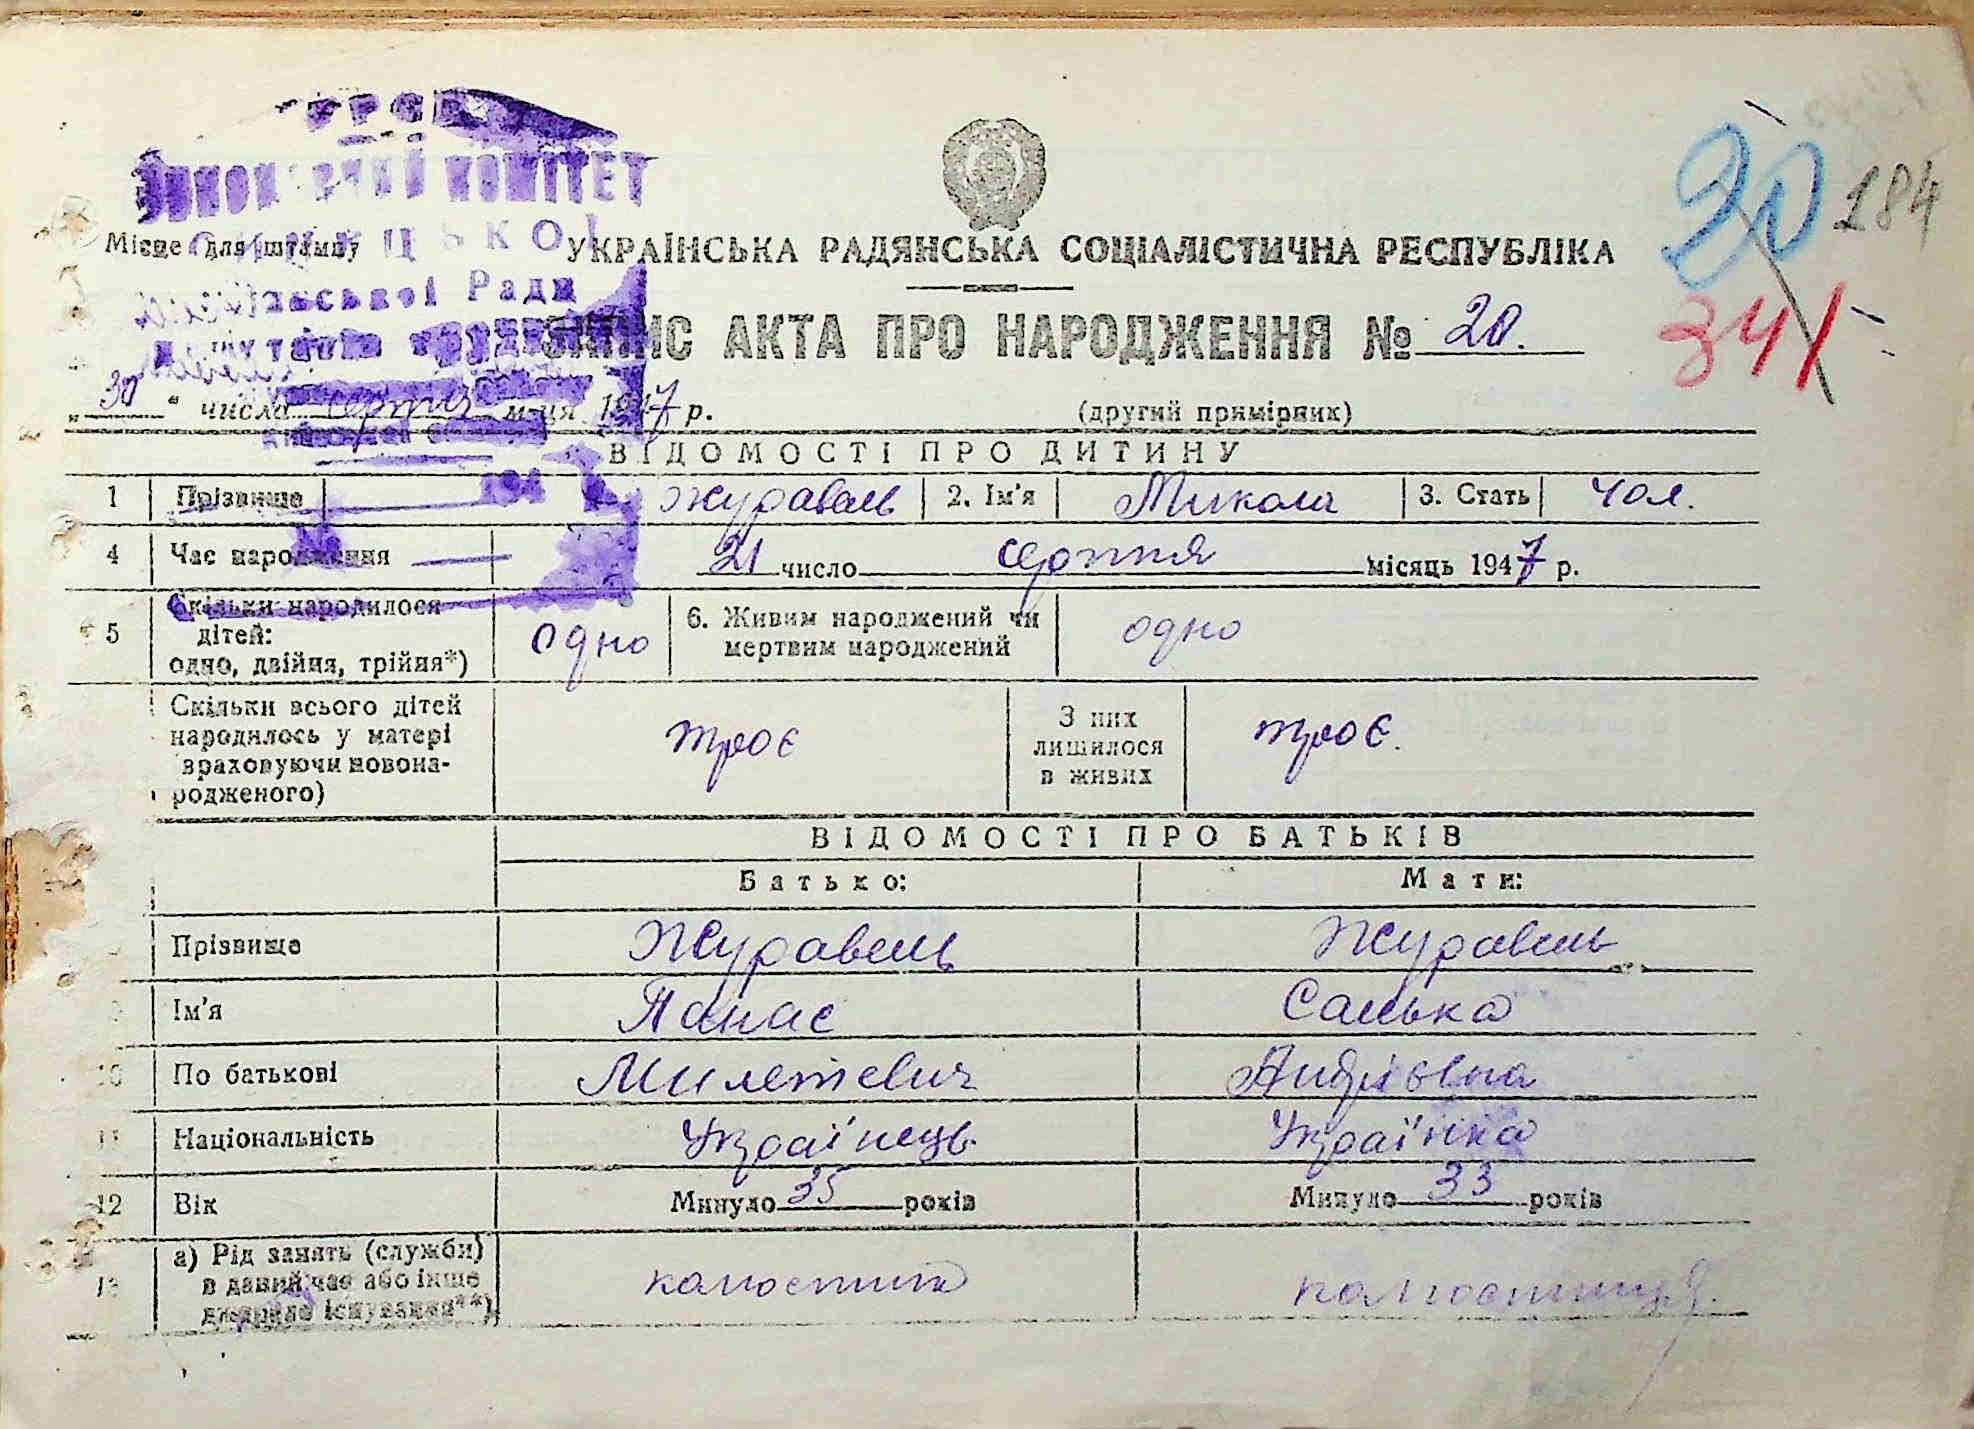 КОМІТЕТ
184
20
Місце для штампу
УКРАЇНСЬКА РАДЯНСЬКА СОЦІАЛІСТИЧНА РЕСПУБЛІКА
Ради
341
ЗАПИС АКТА ПРО НАРОДЖЕННЯ № 20.
„30“ числа серпня м-ця 1947 р.
(другий примірник)
ВІДОМОСТІ ПРО ДИТИНУ
194
1 Прізвище Журавель 2. Ім'я Микола 3. Стать чол.
4 Час народження 21 число серпня місяць 1947 р.
5 Скільки народилося дітей: одно, двійня, трійня*) одно 6. Живим народжений чи мертвим народжений одно
Скільки всього дітей народилось у матері враховуючи новонародженого) троє З них лишилося в живих троє.
ВІДОМОСТІ ПРО БАТЬКІВ
Батько: Мати:
Прізвище Журавель Журавель
Ім'я Панас Санька
10 По батькові Милетевич Андріївна
11 Національність Українець Українка
12 Вік Минуло 35 років Минуло 33 років
13 а) Рід занять (служби) в даний час або інше джерело існування**)